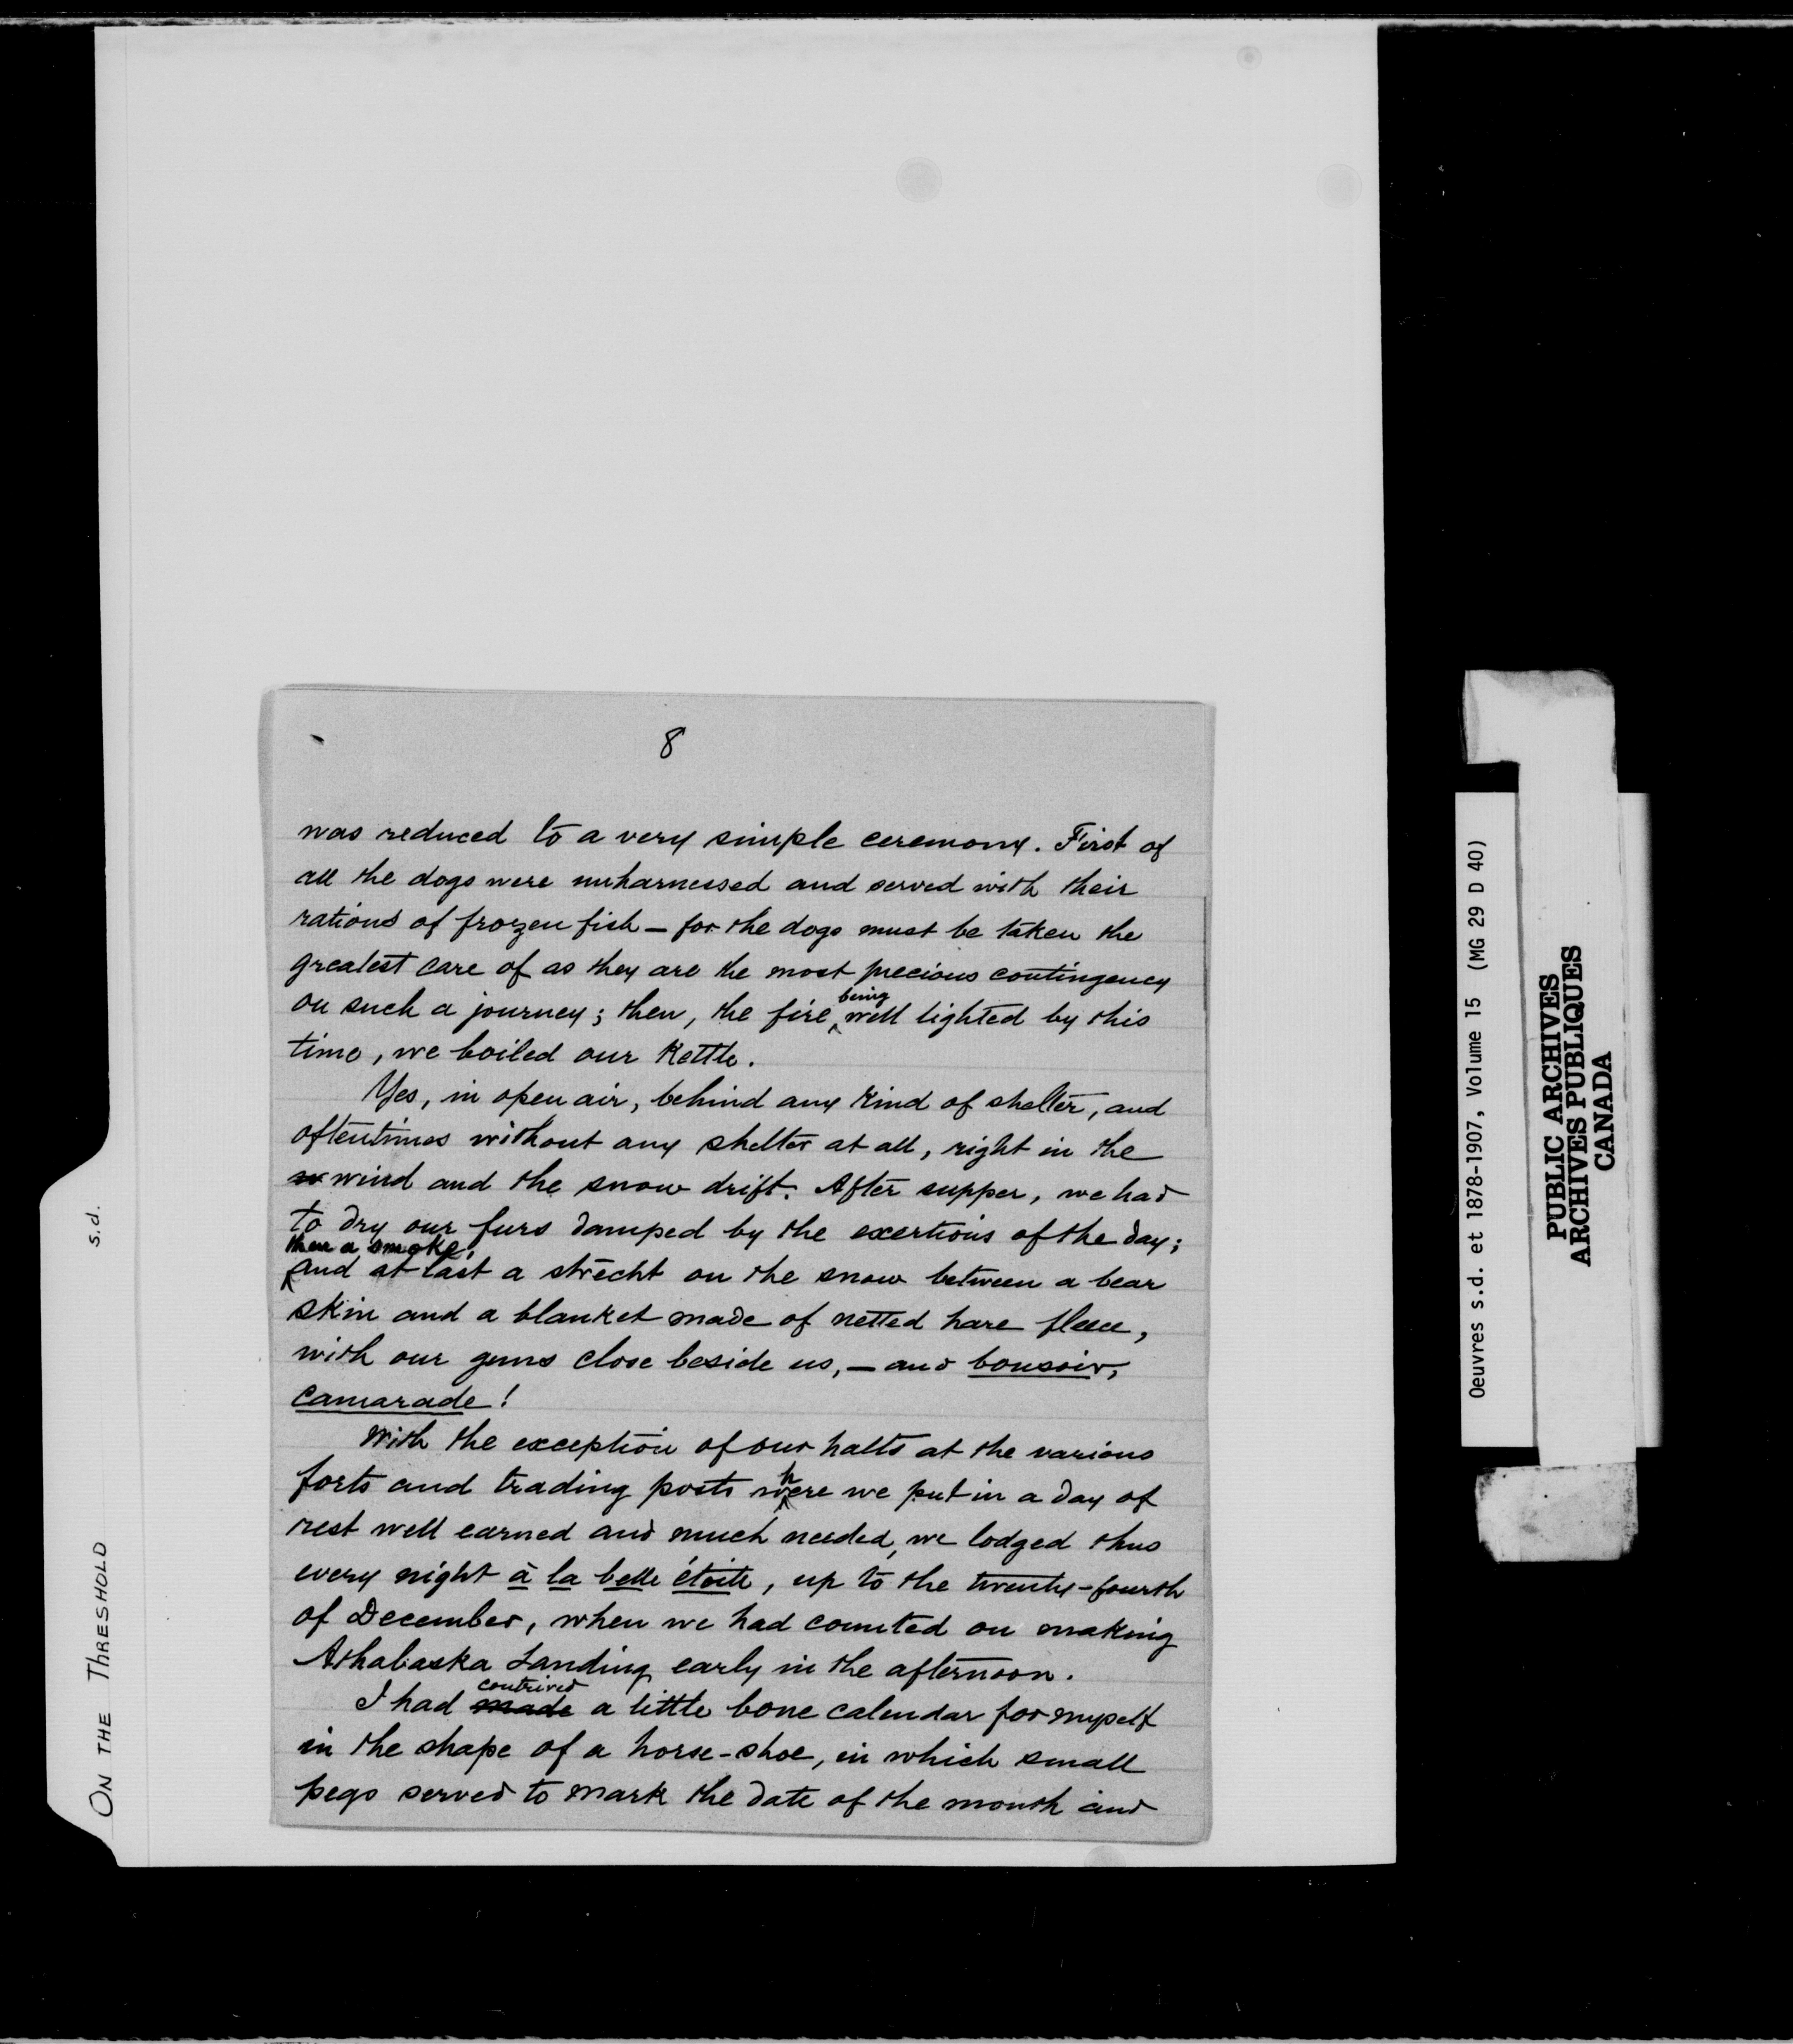 8
was reduced to a very simple ceremony. First of
all the dogs were unharnessed and served with their
rations of frozen fish — for the dogs must be taken the
greatest care of as they are the most precious contingency
on such a journey; then, the fire being well lighted by this
time, we boiled our Kettle.
Yes, in open air, behind any kind of shelter, and
oftentimes without any shelter at all, right in the
wind and the snow drift. After supper, we had
to dry our furs damped by the exertions of the day;
then a smoke,
and at last a strecht on the snow between a bear
skin and a blanket made of netted hare fleece,
with our guns close beside us, — and bonsoir,
camarade!
With the exception of our halts at the various
forts and trading posts where we put in a day of
rest well earned and much needed, we lodged thus
every night à la belle étoile, up to the twenty-fourth
of December, when we had counted on making
Athabaska Landing early in the afternoon.
I had made contrived a little bone calendar for myself
in the shape of a horse-shoe, in which small
pegs served to mark the date of the month and
ON THE THRESHOLD s.d.
Oeuvres s.d. et 1878-1907, Volume 15 (MG 29 D 40)
PUBLIC ARCHIVES
ARCHIVES PUBLIQUES
CANADA